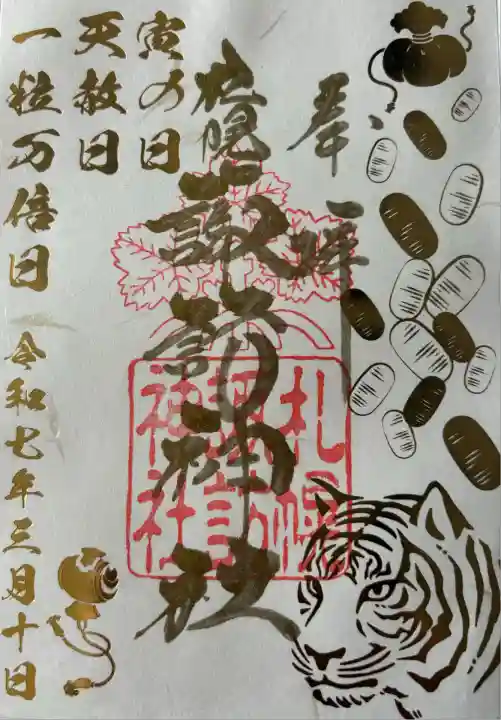 奉拝
札幌
諏訪神社
札幌
諏訪
神社
寅の日
天赦日
一粒万倍日
令和七年三月十日